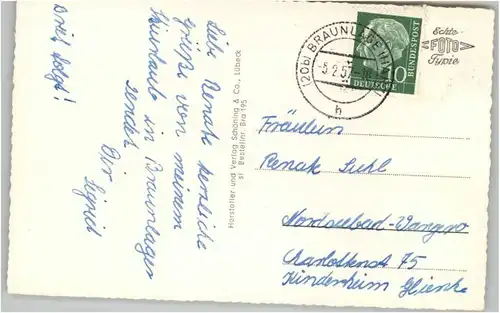 Liebe Renate herzliche
Grüße von meinem
Skiurlaub in Braunlage
sendet
Dir
Sigrid
Brief folgt!
Hersteller und Verlag Schöning & Co., Lübeck
Bestellnr. Bra 195
(20b) BRAUNLAGE
-5.2.57
h
10
DEUTSCHE
BUNDESPOST
Echte
FOTO
Typie
Fräulein
Renate Suhl
Nordseebad-Wangero
Charlottenst 75
Kinderheim Glienke